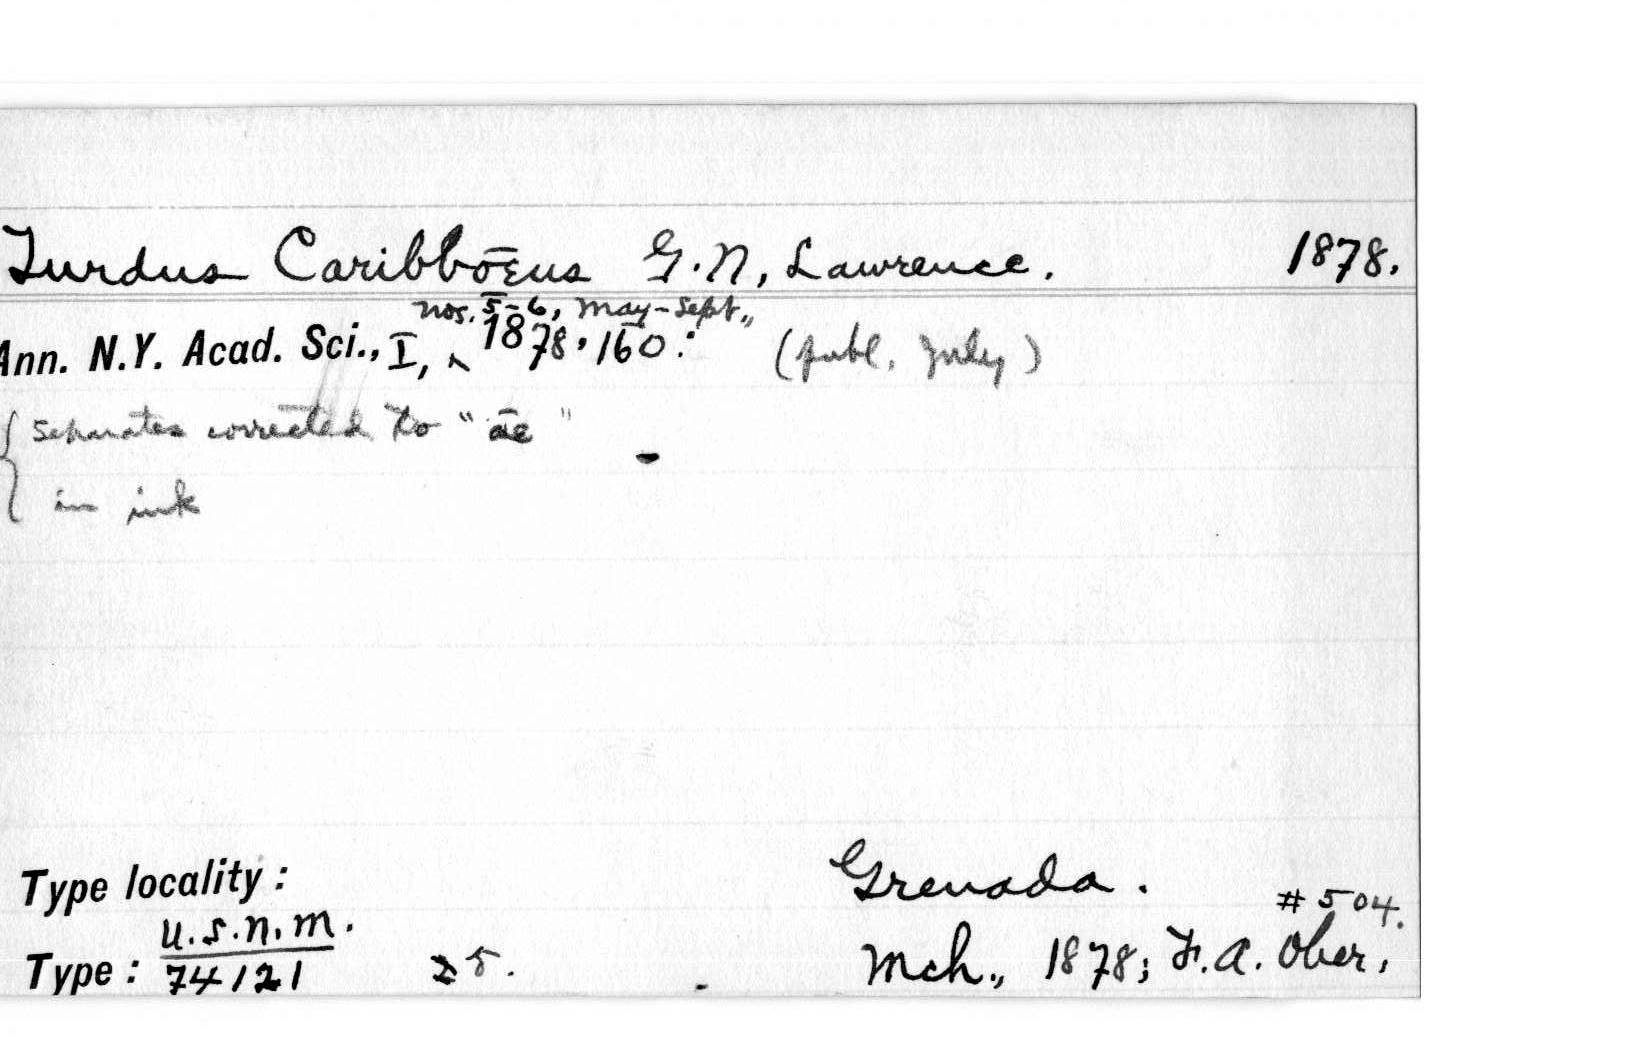 Turdus Caribbœus G. N, Lawrence. 1878.
nos. 5-6, May-Sept.,,
Ann. N.Y. Acad. Sci., I, ^ 1878, 160: (publ. July)
{ Separates corrected to "æ"
in ink
Type locality: Grenada.
U.S.N.M. #504.
Type: 74121 Mch., 1878; F. A. Ober,